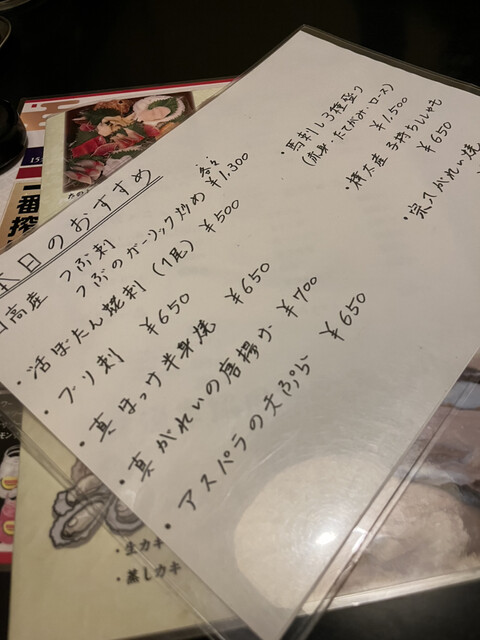 本日のおすすめ
日高産 つぶ刺
つぶのガーリック炒め 各々 ¥1,300
・活ぼたん蝦刺(1尾) ¥500
・ブリ刺 ¥650
・真ほっけ半身焼 ¥650
・真がれいの唐揚げ ¥700
・アスパラの天ぷら ¥650
・馬刺し3種盛り
(赤身・たてがみ・ロース) ¥1,500
・広大産 子持ちししゃも ¥650
・宗八がれい焼
一番搾
・生カキ
・蒸しカキ